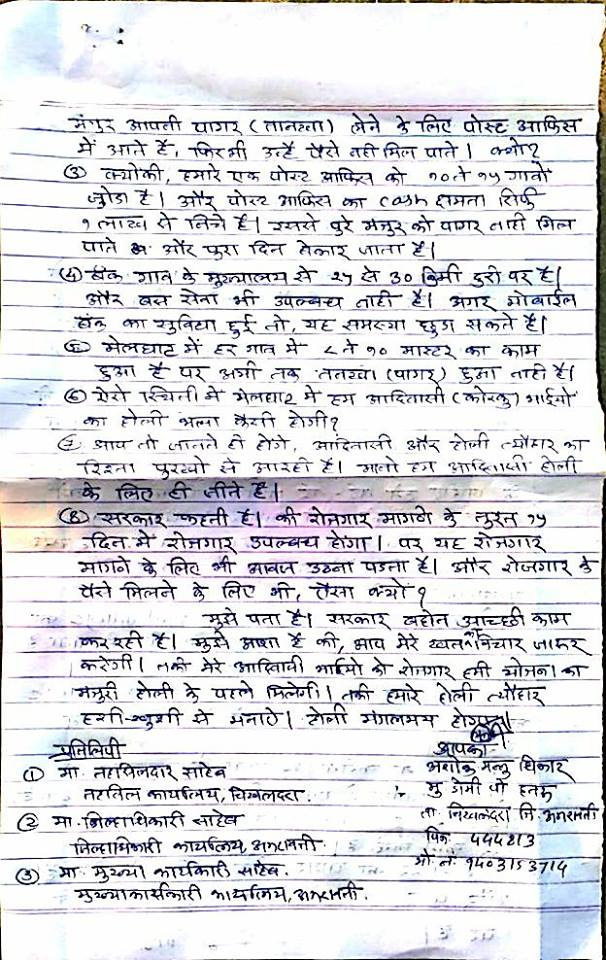 मंजुर आपली पागर (तानख्वा) लेने के लिए पोस्ट आफिस
में आते है, फिरभी उन्हें पैसे नही मिल पाते। क्यो?
③ क्योकी, हमारे एक पोस्ट आफिस को १० ते १५ गावो
जुडा है। और पोस्ट आफिस का cash क्षमता सिर्फ
१ लाख से निचे है। इससे पुरे मजुर को पागर नाही मिल
पाते और पुरा दिन बेकार जाता है।
④ बँक गाव के मुख्यालय से २५ से 30 किमी दुरी पर है।
और बस सेवा भी उपलब्ध नाही है। अगर मोबाईल
बँक का सुविधा हुई तो, यह समस्या छुग सकते है।
⑤ मेलघाट में हर गाव मे ८ ते १० मास्टर का काम
हुआ है पर अभी तक तनख्वा (पागर) हुआ नाही है।
⑥ ऐसे स्थिती में मेलघाट मे हम आदिवासी (कोरकु) भाईयो
का होली भला कैसी होगी?
आप तो जानते ही होगे, आदिवासी और होली त्यौहार का
रिश्ता पुरखो से आ रही है। मानो हम आदिवासी होली
के लिए ही जीते है।
⑧ सरकार कहती है। की रोजगार मागगे के तुरन्त १५
दिन में रोजगार उपलब्ध होगा। पर यह रोजगार
मागने के लिए भी आवाज उठना पडता है। और रोजगार के
पैसे मिलने के लिए भी, ऐसा क्यो?
मुझे पता है। सरकार बहोत आच्छी काम
कर रही है। मुझे आशा है की, आप मेरे खत विचार जरूर
करेगी। तकी मेरे आदिवासी भाईयो को रोजगार हमी योजना का
मजुरी होली के पहले मिलेगी। तकी हमारे होली त्यौहार
हसी-खुशी से मनाऐ। होली मंगलमय हो
प्रतिलिपी
① मा. तहसिलदार साहेब
तहसिल कार्यालय, चिखलदरा.
② मा. जिल्हाधिकारी साहेब
जिल्हाधिकारी कार्यालय, अमरावती.
③ मा. मुख्या कार्यकारी साहेब.
मुख्याकार्यकारी कार्यालय, अमरावती.
आपका
अशोक मन्नु धिकार
मु डोमी पो हतरू
ता. चिखलदरा जि. अमरावती
पिन 444813
मो. नं. 9403153714